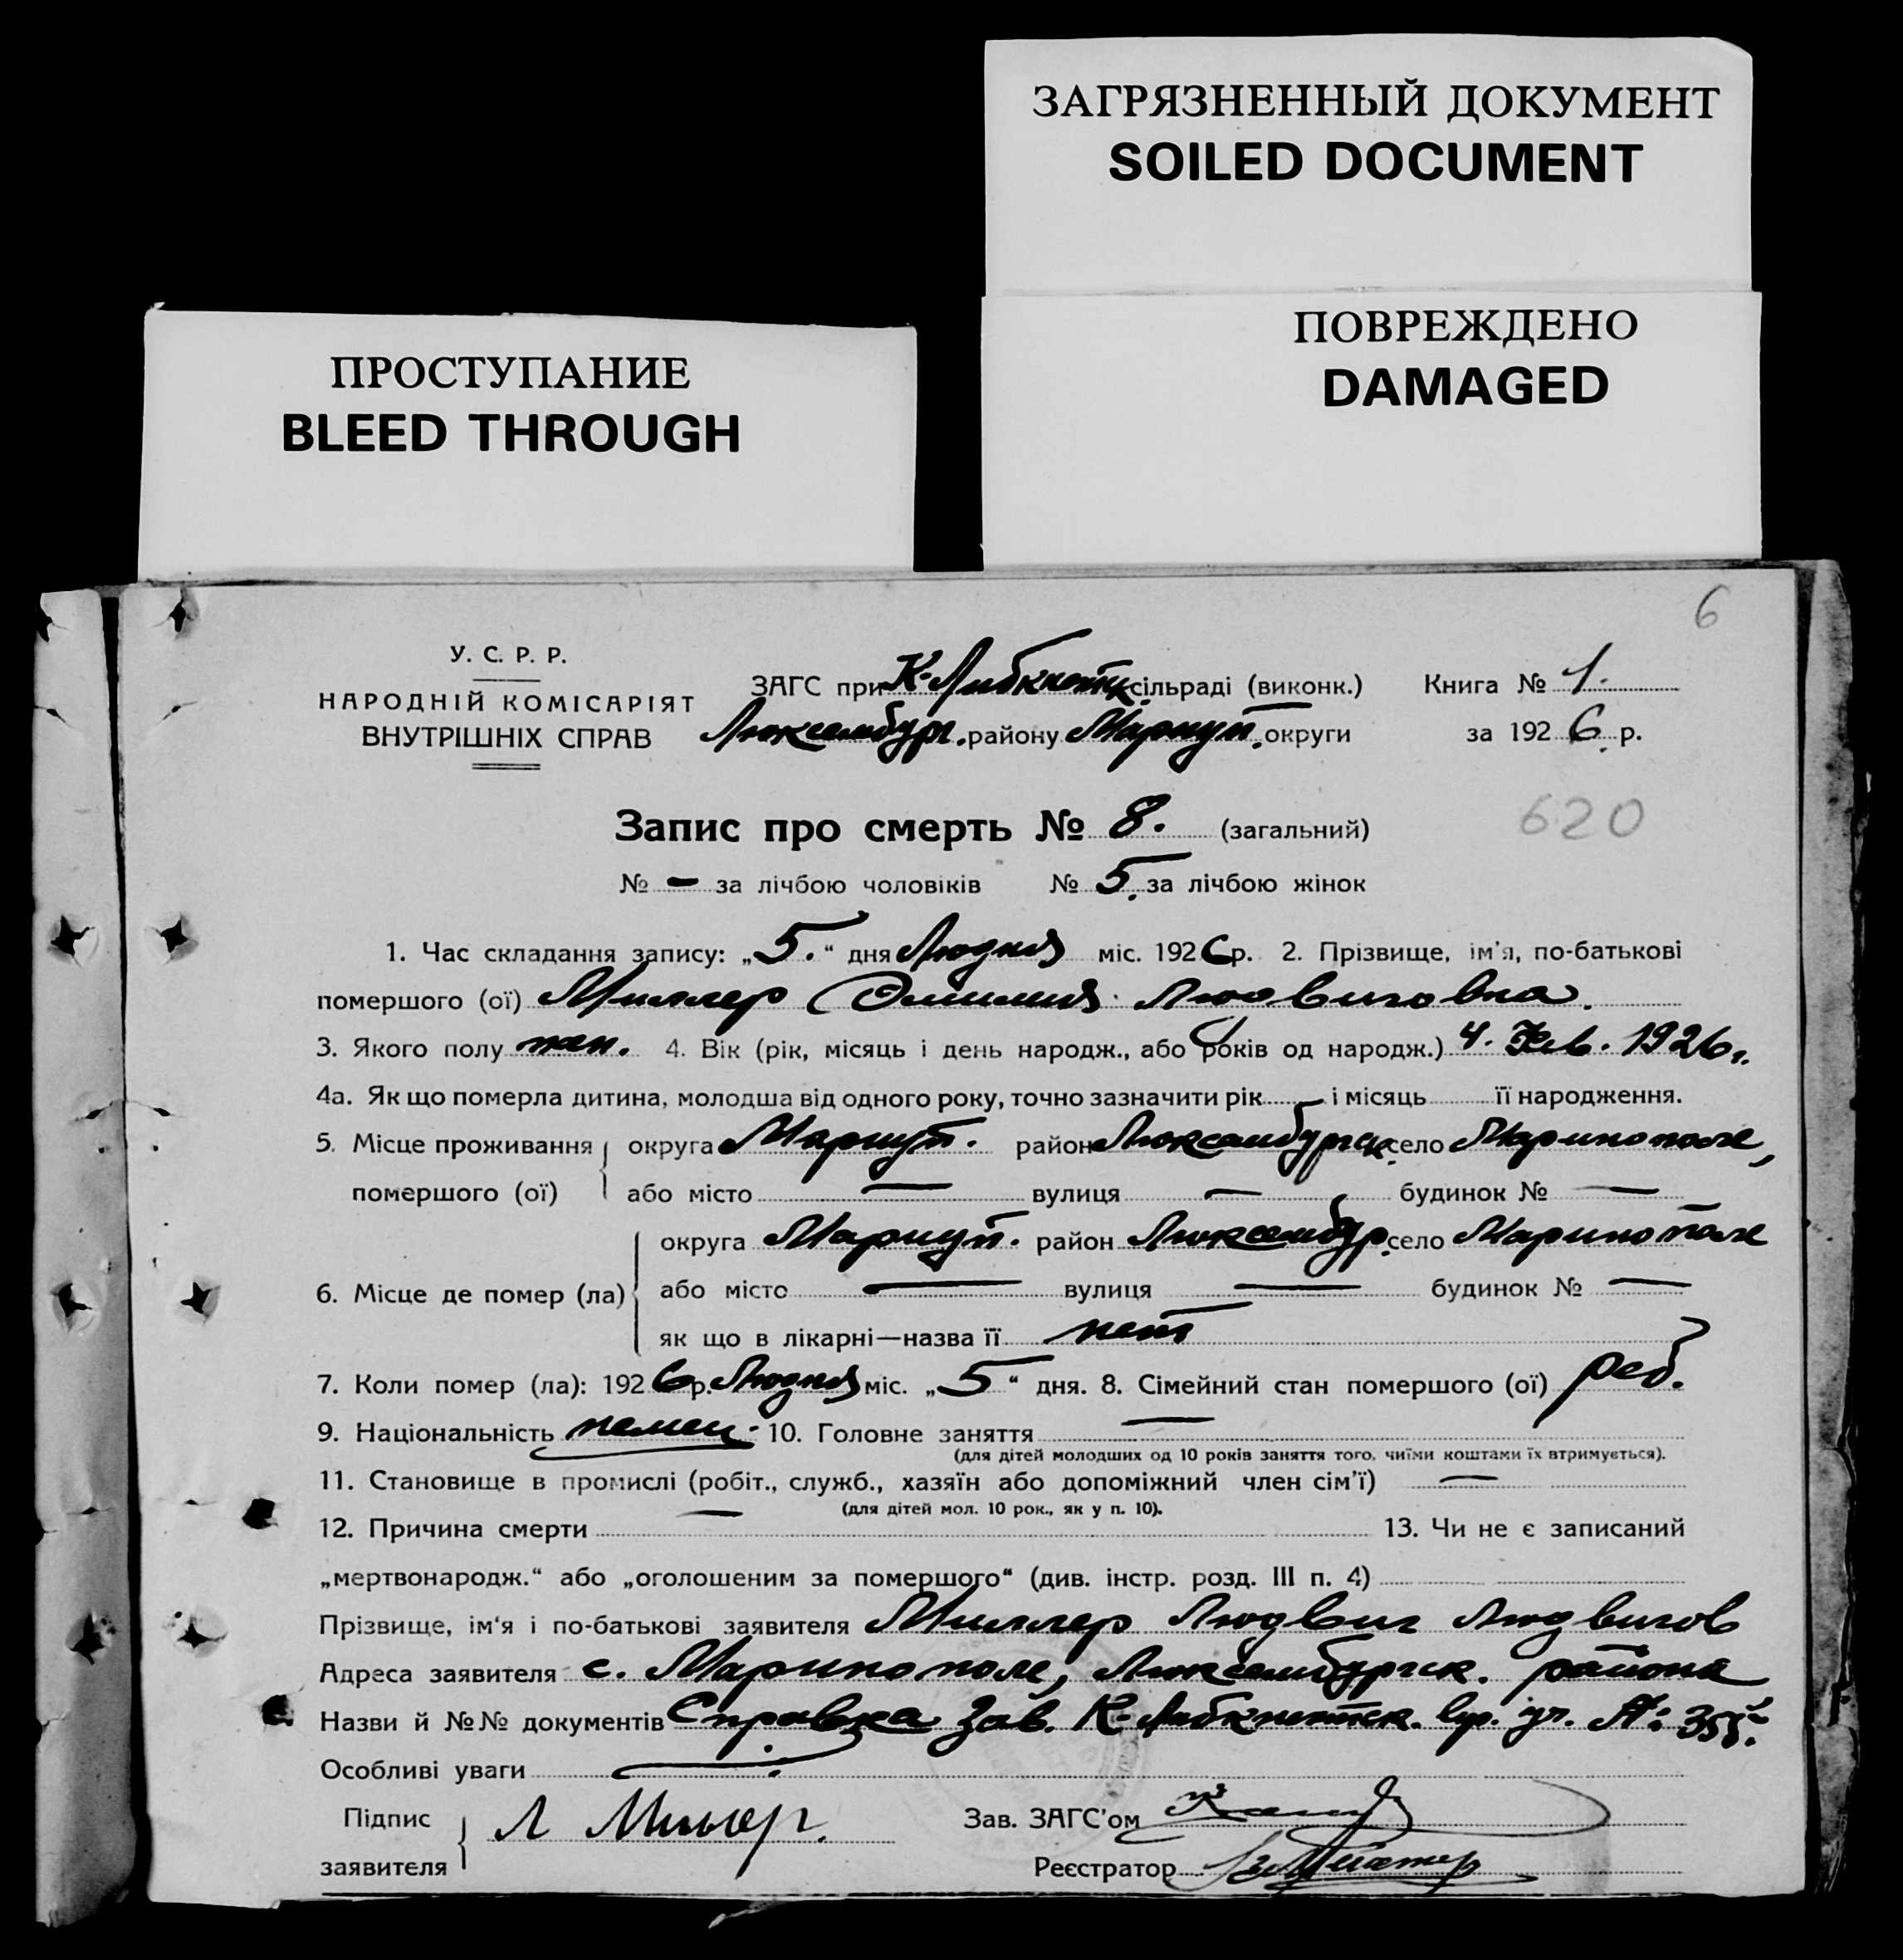 ЗАГРЯЗНЕННЫЙ ДОКУМЕНТ
SOILED DOCUMENT
ПОВРЕЖДЕНО
DAMAGED
ПРОСТУПАНИЕ
BLEED THROUGH
6
У. С. Р. Р.
НАРОДНІЙ КОМІСАРІЯТ
ВНУТРІШНІХ СПРАВ
ЗАГС при К-Либкнехт. сільраді (виконк.) Книга № 1.
Люксембург. району Мариуп. округи за 1926 р.
Запис про смерть № 8. (загальний) 620
№ — за лічбою чоловіків № 5. за лічбою жінок
1. Час складання запису: „5.“ дня міс. 1926 р. 2. Прізвище, ім'я, по-батькові
помершого (ої) Миллер Эмилия Людвиговна.
3. Якого полу жен. 4. Вік (рік, місяць і день народж., або років од народж.) 4. 1926 г.
4а. Як що померла дитина, молодша від одного року, точно зазначити рік — і місяць її народження.
5. Місце проживання округа Мариуп. район Люксембургск. село Маринополе,
помершого (ої) або місто — вулиця — будинок № —
округа Мариуп. район Люксембур. село Маринополе
6. Місце де помер (ла) або місто — вулиця — будинок № —
як що в лікарні—назва її нет
7. Коли помер (ла): 1926 р. міс. „5“ дня. 8. Сімейний стан помершого (ої) реб.
9. Національність немец. 10. Головне заняття —
(для дітей молодших од 10 років заняття того, чиїми коштами їх втримується).
11. Становище в промислі (робіт., служб., хазяїн або допоміжний член сім'ї) —
(для дітей мол. 10 рок., як у п. 10).
12. Причина смерти — 13. Чи не є записаний
„мертвонародж.“ або „оголошеним за помершого“ (див. інстр. розд. III п. 4)
Прізвище, ім'я і по-батькові заявителя Миллер Людвиг Людвигов
Адреса заявителя с. Маринополе, Люксембургск. района
Назви й №№ документів Справка Зав. К-Либкнехтск. вр. уч. №: 355.
Особливі уваги —
Підпис
заявителя Л Миллер. Зав. ЗАГС'ом
Реєстратор